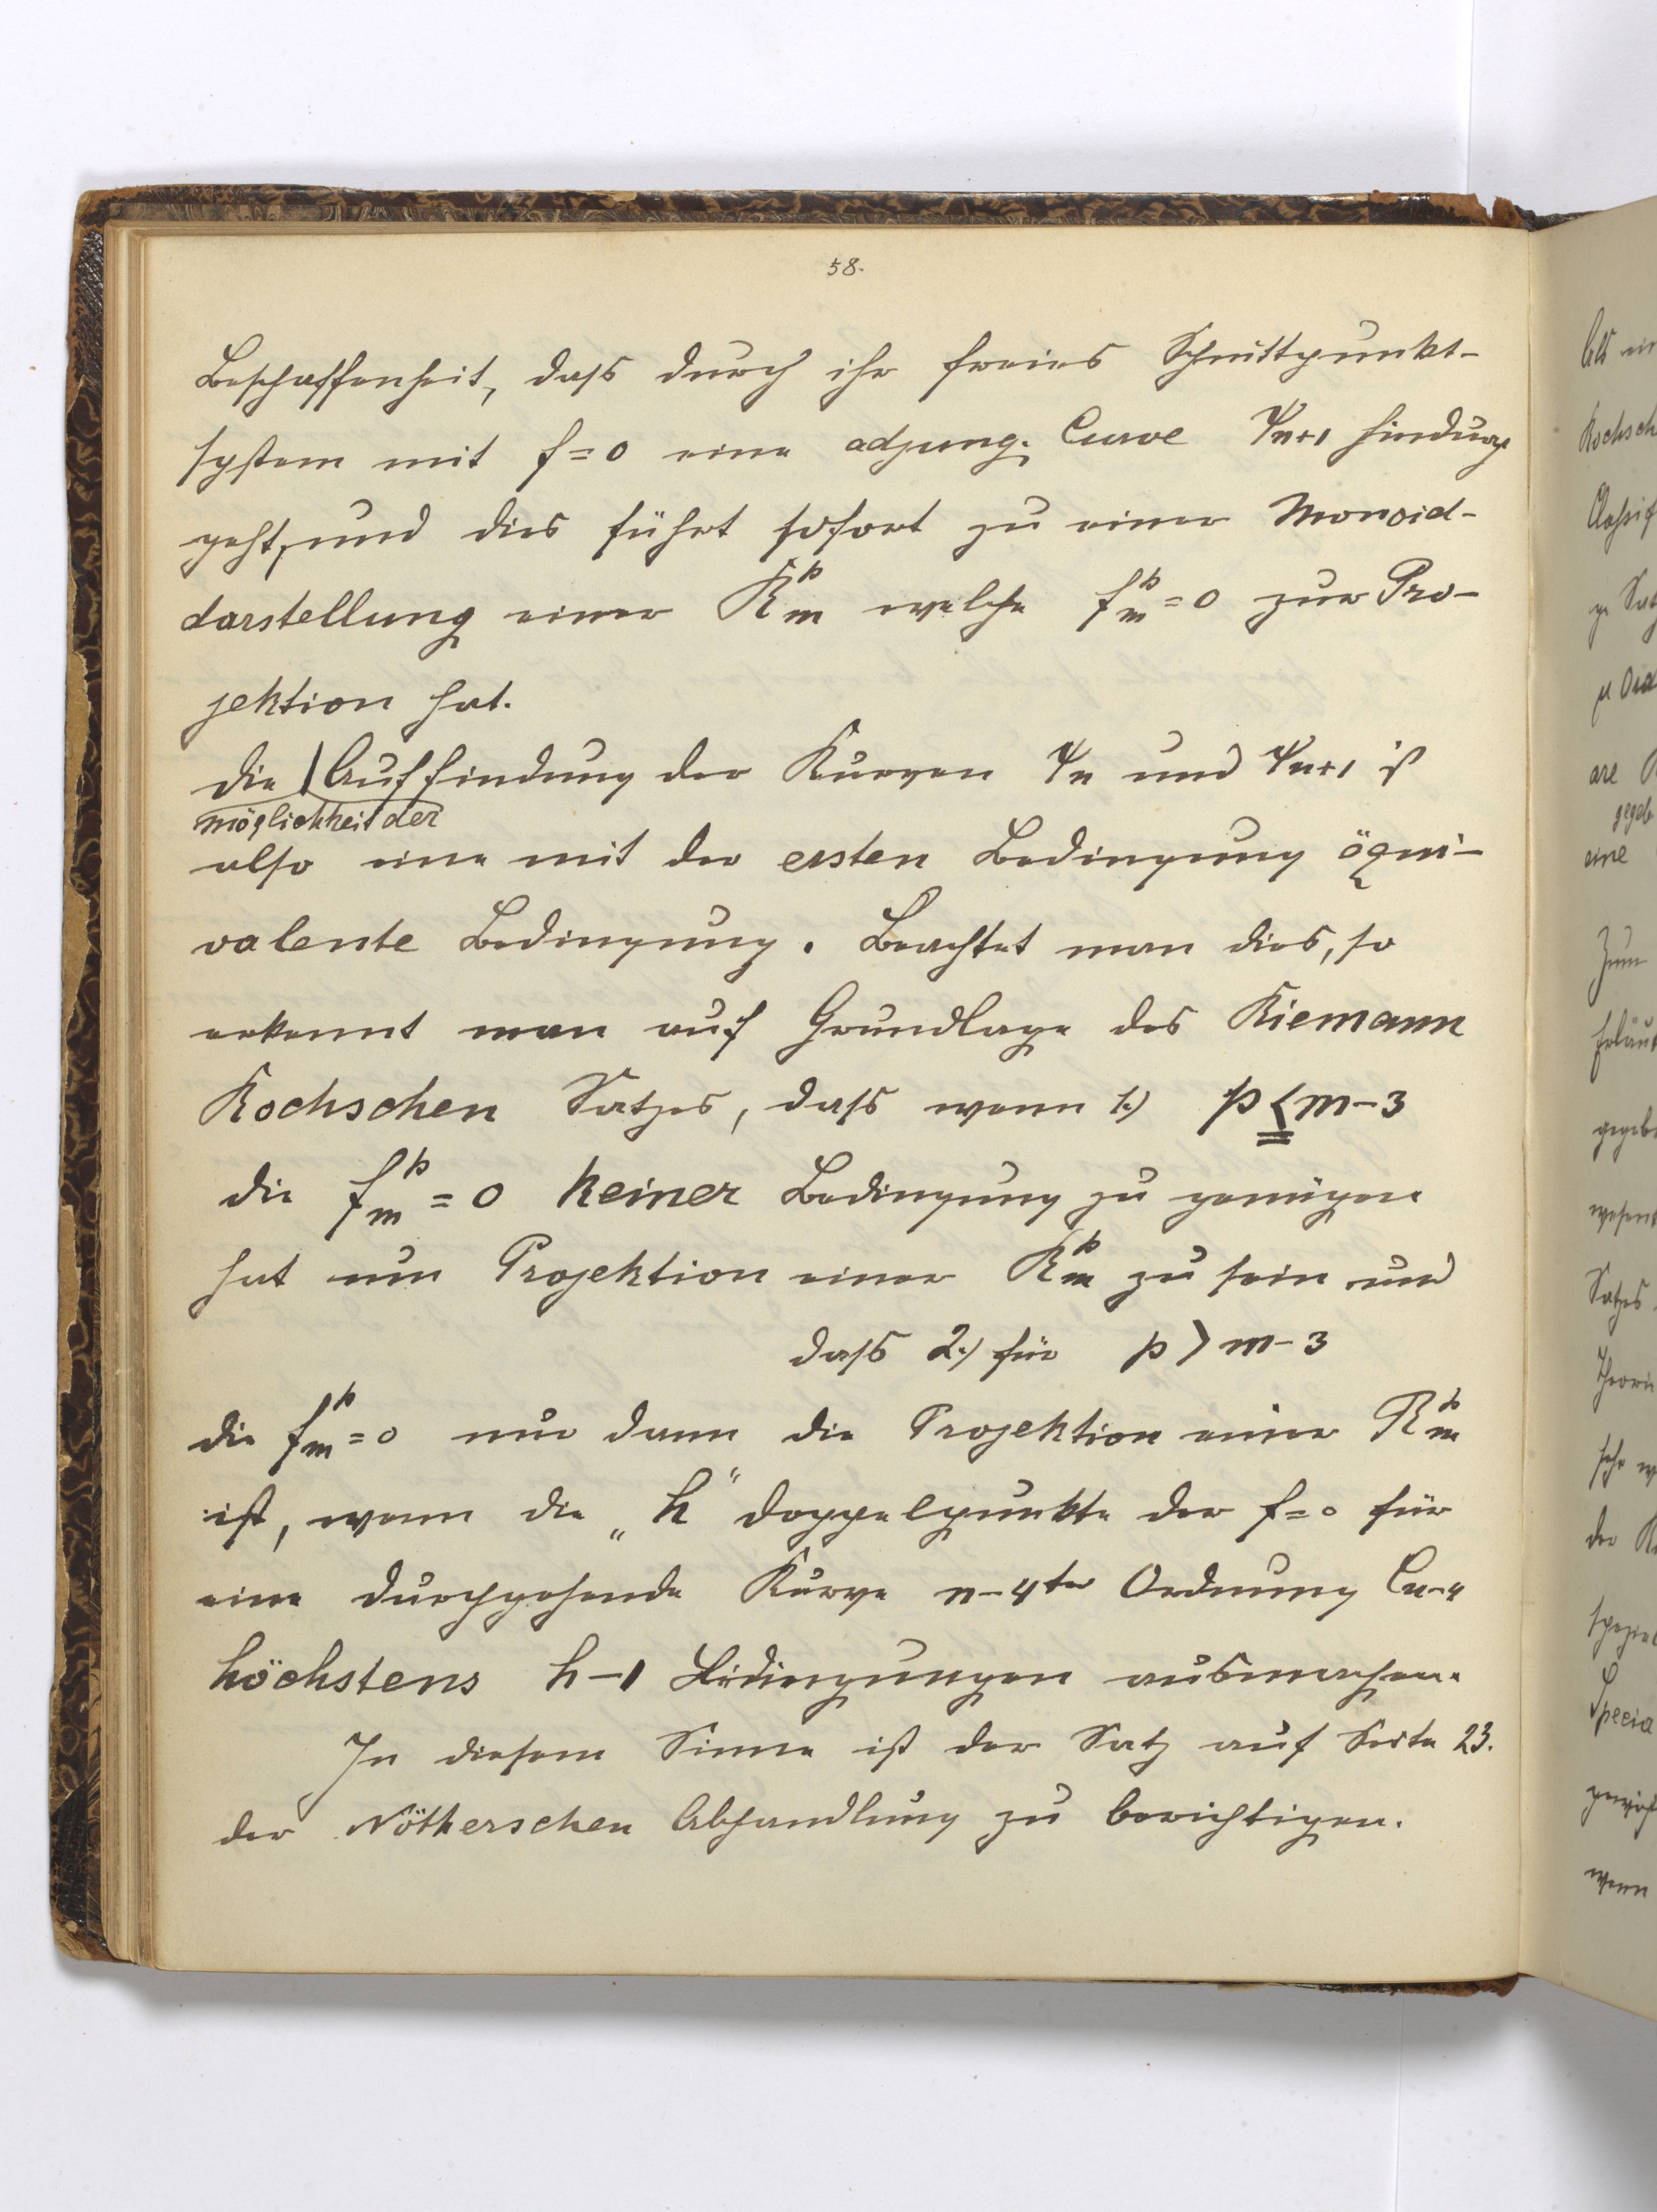 58.
Beschaffenheit, dass durch ihr freies Schnittpunkt-
system mit f=0 eine adjung. Curve ψn+1 hindurch
geht, und dies führt sofort zu einer Monoid-
darstellung einer R_m^p welche f_m^p=0 zur Pro-
jektion hat.
Die Auffindung der Kurven ψn und ψn+1 ist
möglichkeit der
also eine mit der ersten Bedingung äqui-
valente Bedingung. Beachtet man dies, so
erkennt man auf Grundlage des Riemann
Rochschen Satzes, dass wenn 1.) p ≤ m-3
die f_m^p = 0 keiner Bedingung zu genügen
hat um Projektion einer R_m^p zu sein und
dass 2.) für p > m-3
die f_m^p=0 nur dann die Projektion einer R_m^p
ist, wenn die „h" Doppelpunkte der f=0 für
eine durchgehende Kurve n-4ter Ordnung Cn-4
höchstens h-1 Bedingungen ausmachen.
In diesem Sinne ist der Satz auf Seite 23.
der Nötherschen Abhandlung zu berichtigen.